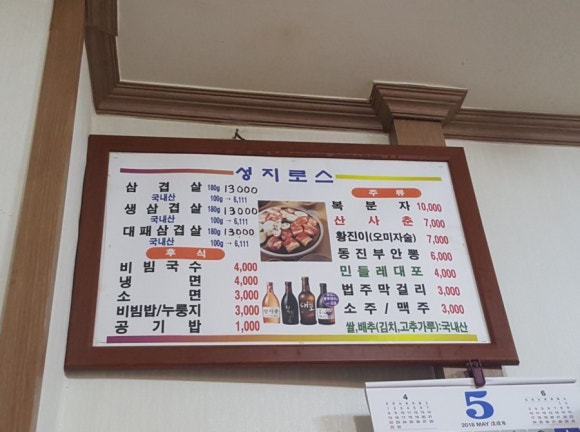 성지로스
삼겹살 180g 13000
국내산 100g → 6,111
생삼겹살 180g 13000
국내산 100g → 6,111
대패삼겹살 180g 13000
국내산 100g → 6,111
후식
비빔국수 4,000
냉면 4,000
소면 3,000
비빔밥/누룽지 3,000
공기밥 1,000
주류
복분자 10,000
산사춘 7,000
황진이(오미자술) 7,000
동진부안뽕 6,000
민들레대포 4,000
법주막걸리 3,000
소주/맥주 3,000
쌀,배추(김치,고추가루):국내산
4
5
6
2018 MAY